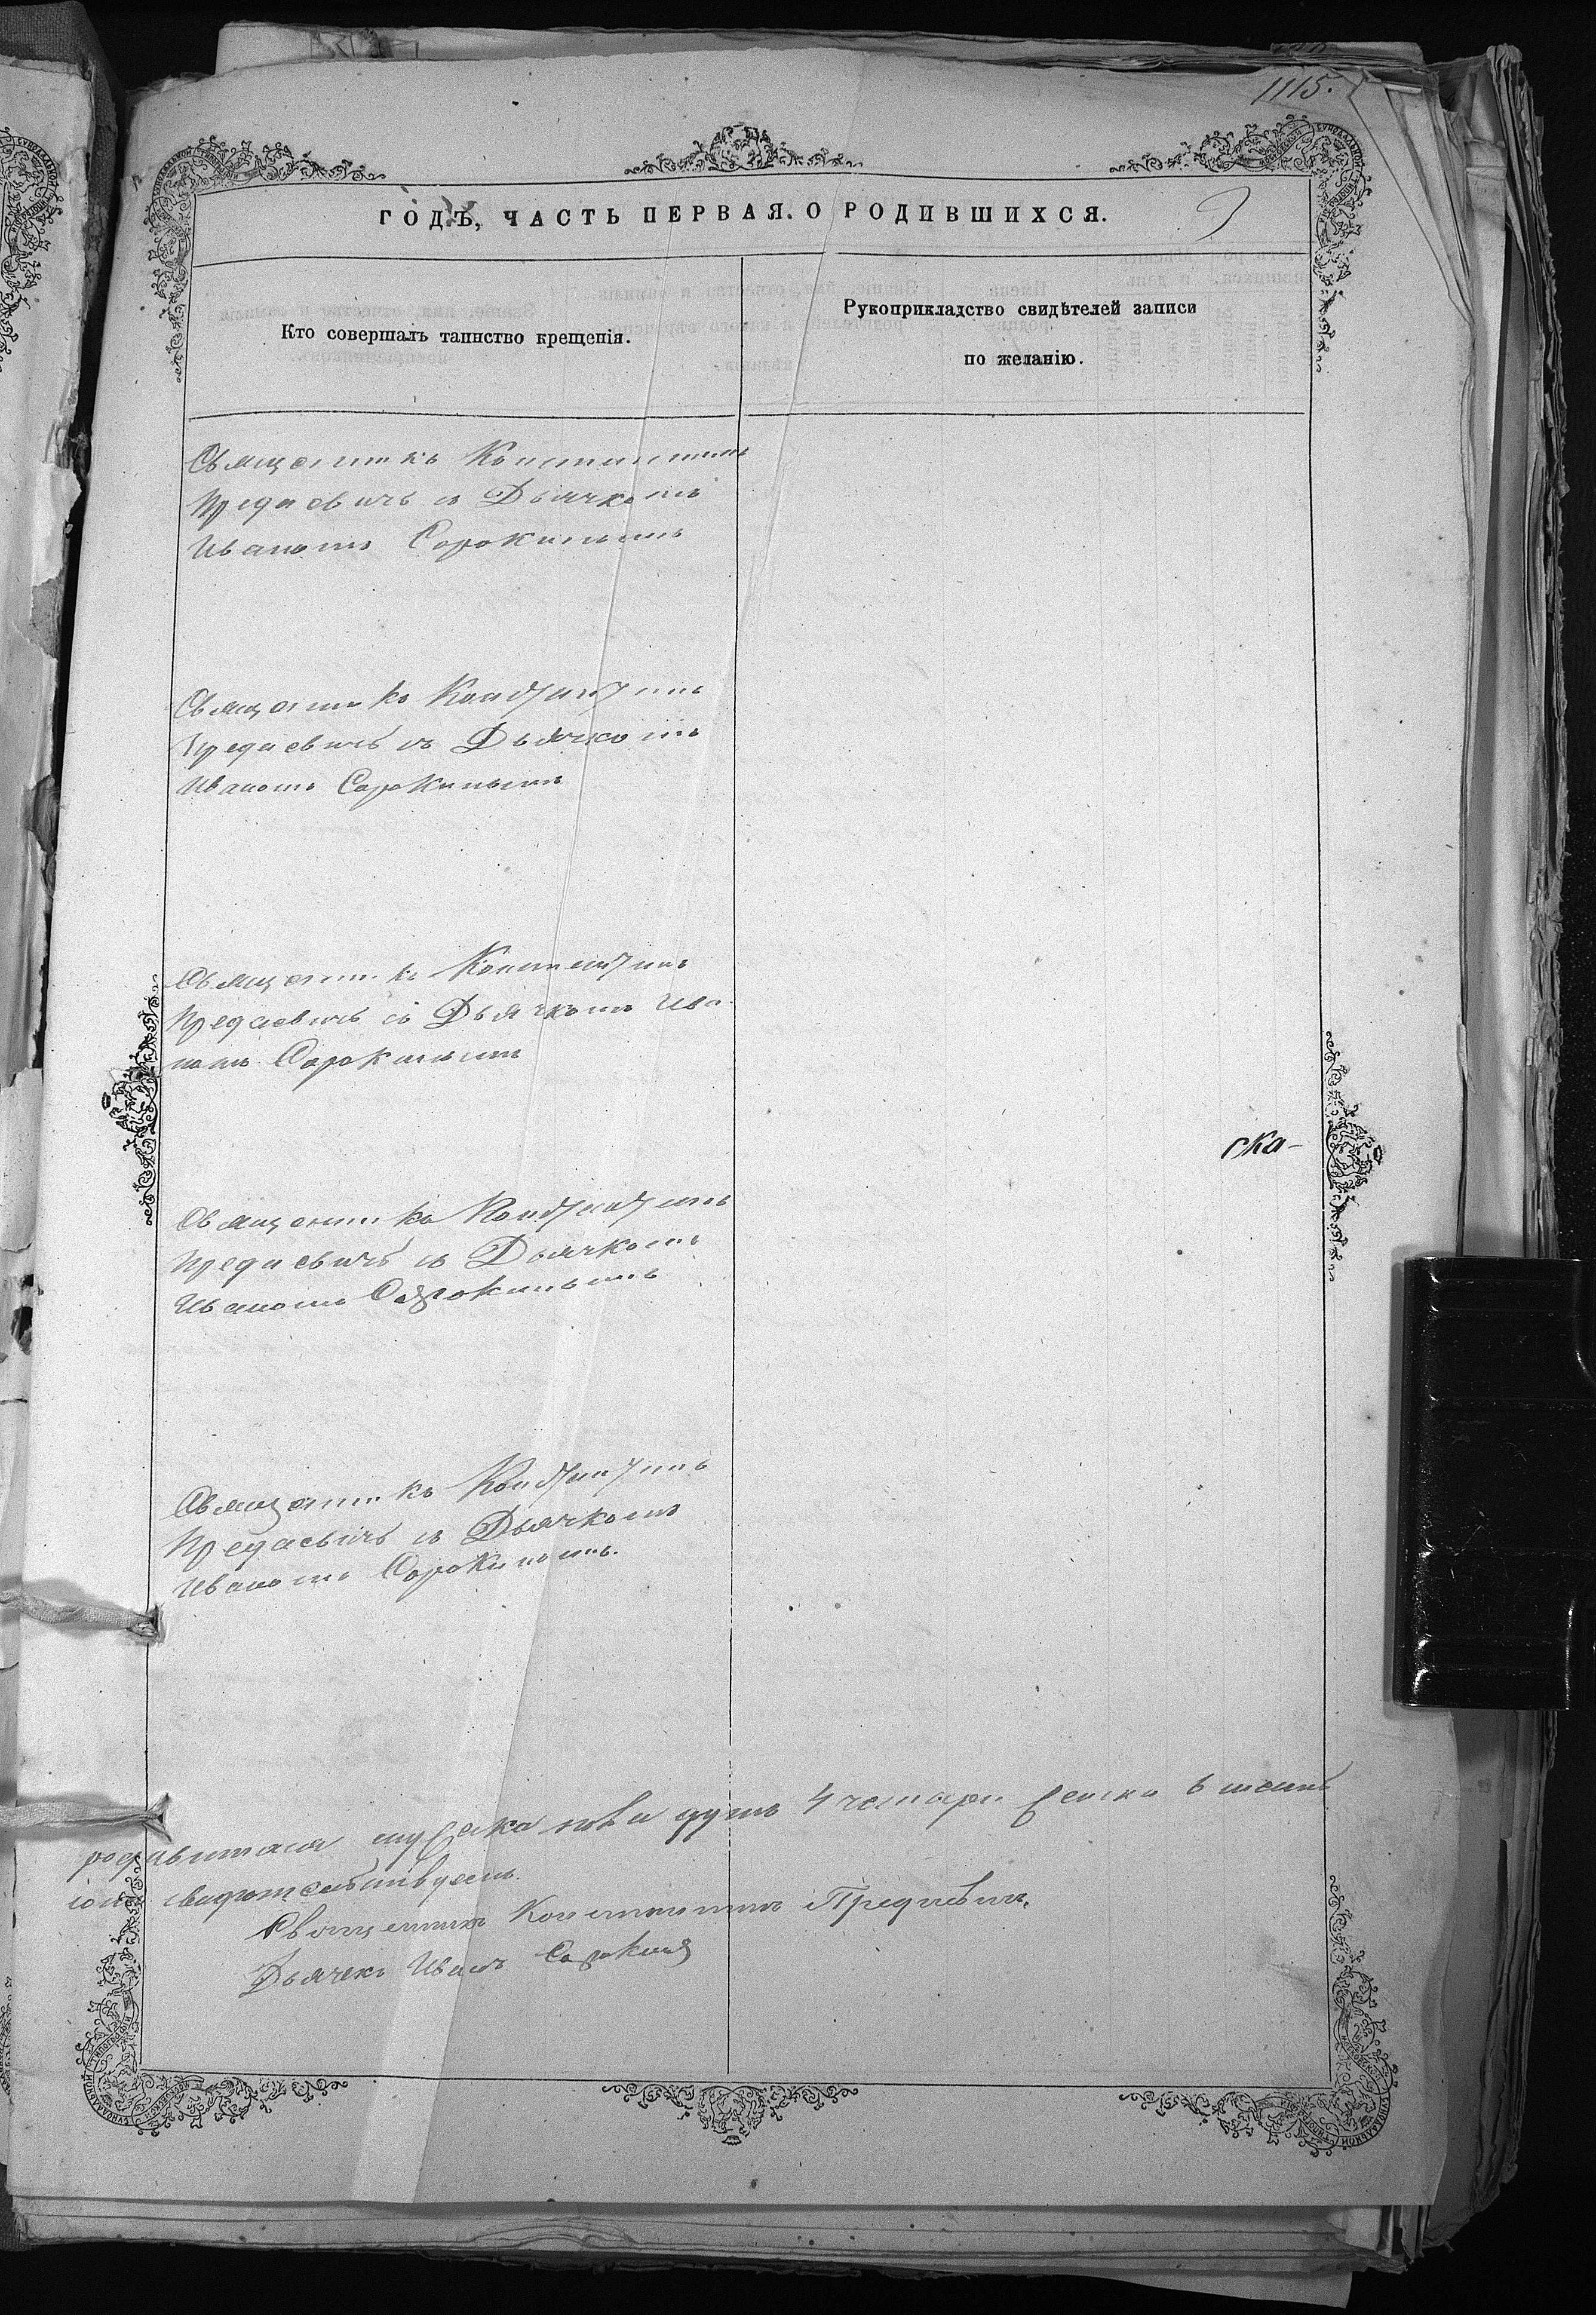 1115.
ГОДЪ, ЧАСТЬ ПЕРВАЯ. О РОДИВШИХСЯ.
Кто совершалъ таинство крещенія.
Рукоприкладство свидѣтелей записи
по желанію.
Священникъ Константинъ
Предаевичъ съ Дьячкомъ
Иваномъ Сорокинымъ
Священникъ Константинъ
Предаевичъ съ Дьячкомъ
Иваномъ Сорокинымъ
Священникъ Константинъ
Предаевичъ съ Дьячкомъ Ива
номъ Сорокинымъ
ска-
Священникъ Константинъ
Предаевичъ съ Дьячкомъ
Иваномъ Сорокинымъ
Священникъ Константинъ
Предаевичъ съ Дьячкомъ
Иваномъ Сорокинымъ.
родившихся мужска пола душъ 4 четыри женска 6 шесть
свидѣтельствуемъ.
Священникъ Константинъ Предаевичъ
Дьячекъ Иванъ Сорокинъ